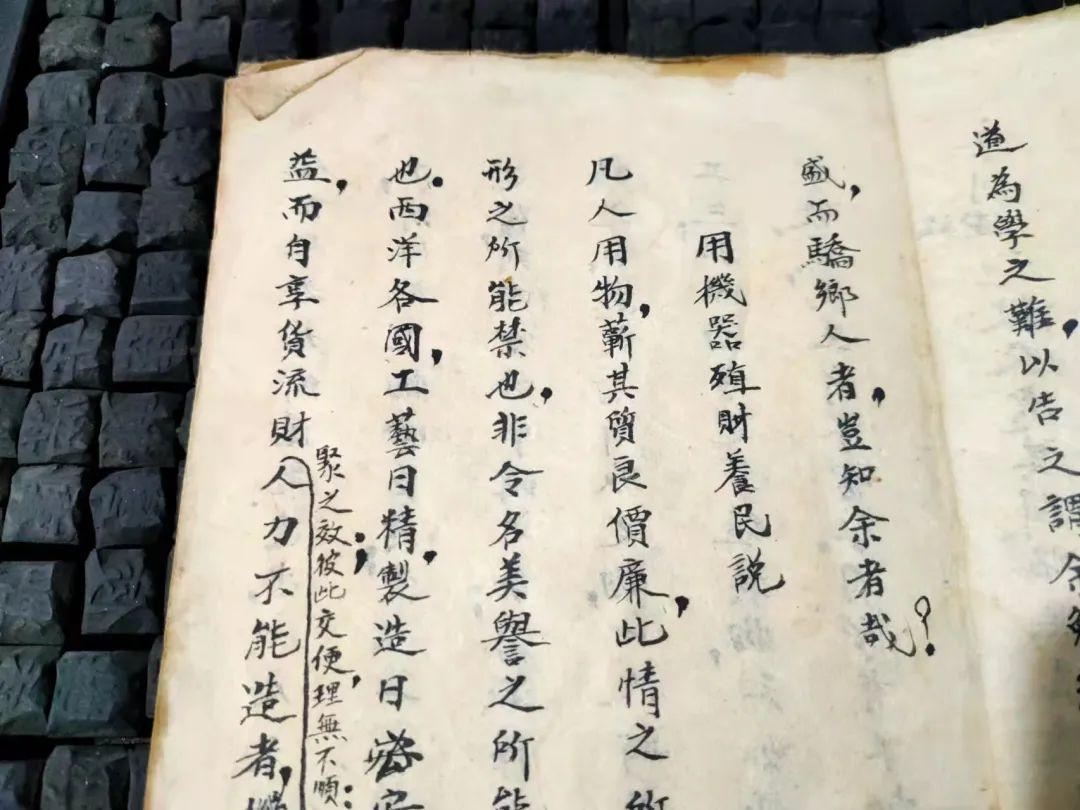 道為學之難，以告之謂余
盛，而驕鄉人者，豈知余者哉？
用機器殖財養民説
凡人用物，蘄其質良價廉，此情之所
形之所能禁也，非令名美譽之所能
也。西洋各國，工藝日精，製造日
益，而自享貨流財人力不能造者，
聚之效；彼此交便，理無不順：